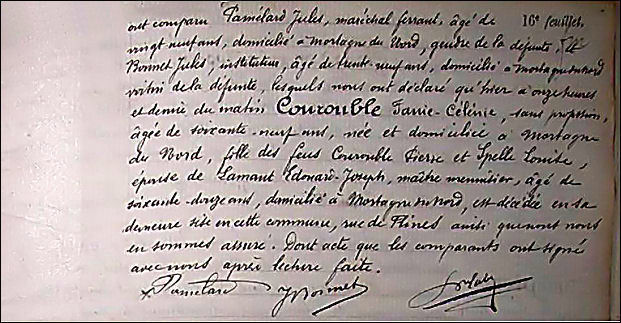 ont comparu Pamélard Jules, maréchal ferrant, âgé de
16e feuillet.
vingt neuf ans, domicilié à Mortagne du Nord, gendre de la défunte, et
Bonnet Jules, instituteur, âgé de trente-neuf ans, domicilié à Mortagne du Nord
voisin de la défunte, lesquels nous ont déclaré qu'hier à onze heures
et demie du matin Courouble Fanie-Célénie, sans profession,
âgée de soixante-neuf ans, née et domiciliée à Mortagne
du Nord, fille des feus Courouble Pierre et Spelle Louise,
épouse de Lamant Edouard-Joseph, maître menuisier, âgé de
soixante-douze ans, domicilié à Mortagne du Nord, est décédée en sa
demeure sise en cette commune, rue de Flines ainsi que nous nous
en sommes assuré. Dont acte que les comparants ont signé
avec nous après lecture faite.
Pamélard JBonnet